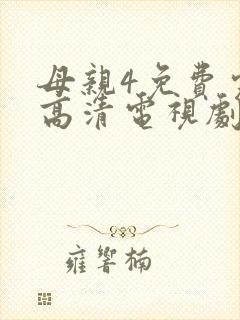 母親4免費
高清電視劇
雍響楠